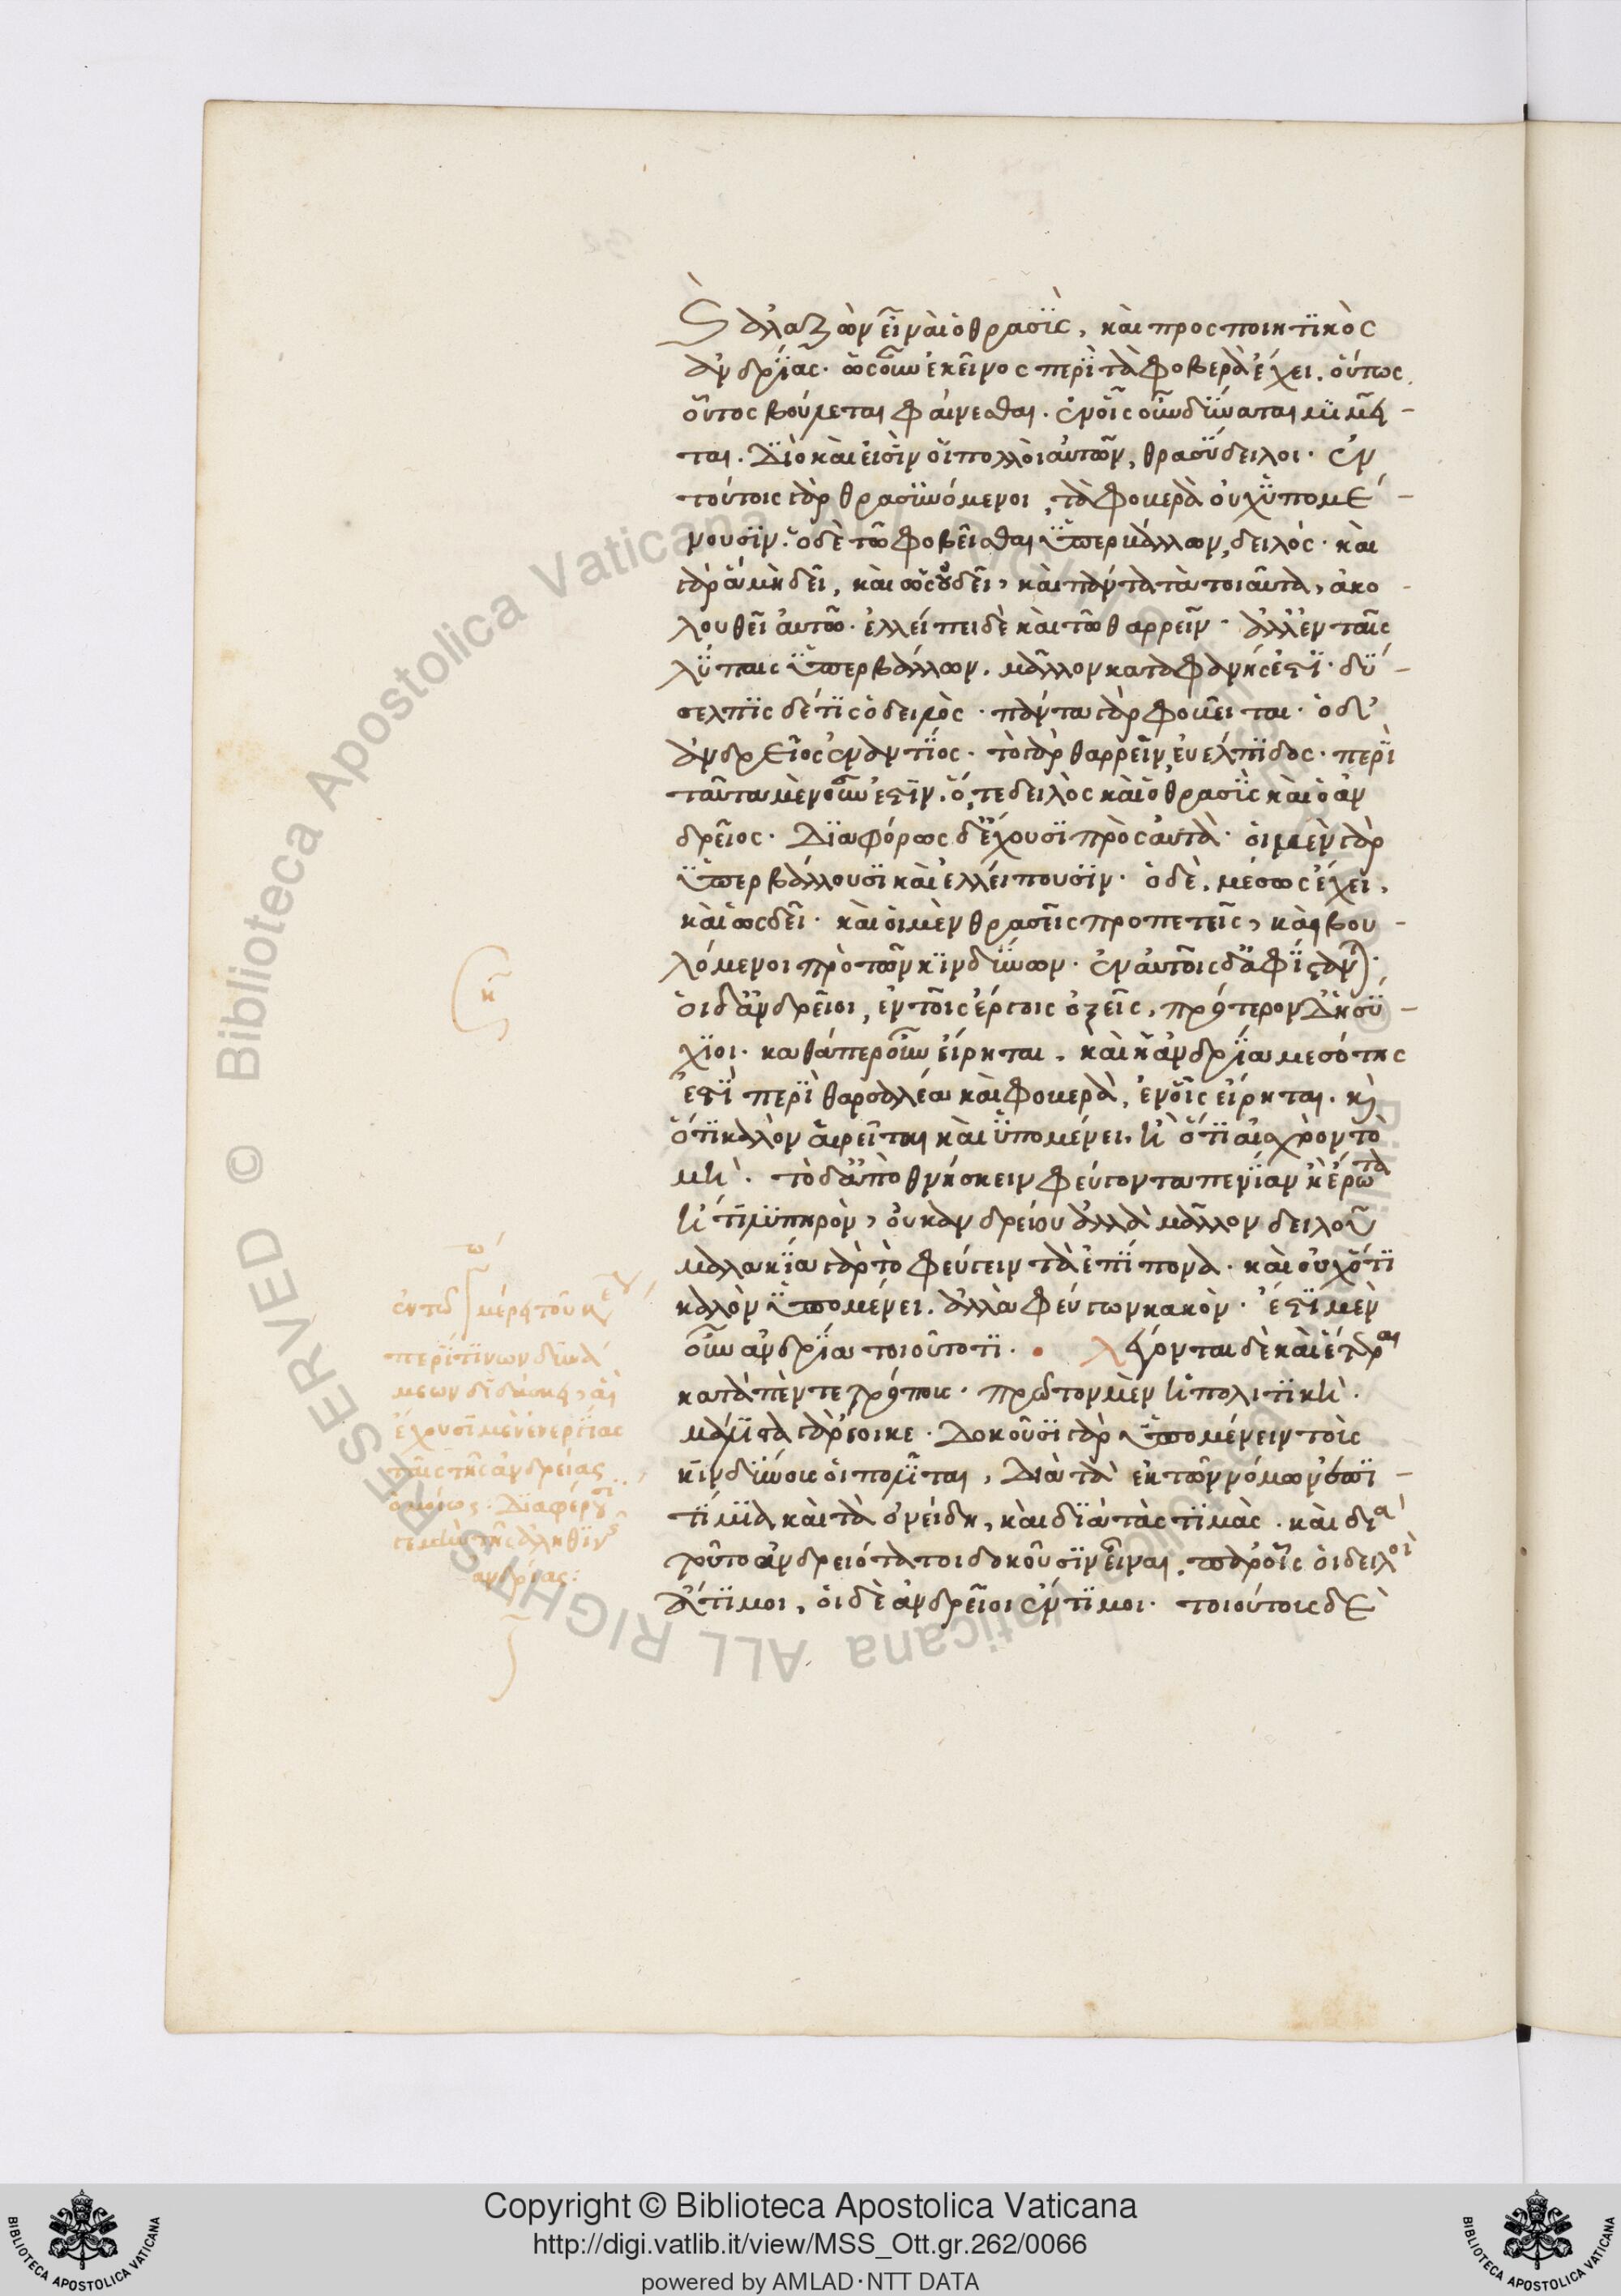 ϗ̀ ἀλαζὼν εἶναι ὁ θρασὺς, καὶ προσποιητικὸς
ἀνδρίας. ὡς οὖν ἐκεῖνος περὶ τὰ φοβερὰ ἔχει. οὕτως
οὗτος βούλεται φαίνεσθαι. ἐν οἷς οὖν δύναται μιμεῖ-
ται. Διὸ καὶ εἰσὶν οἱ πολλοὶ αὐτῶν, θρασύδειλοι. ἐν
τούτοις γὰρ θρασυνόμενοι, τὰ φοβερὰ οὐχ ὑπομέ-
νουσιν. ὁ δὲ τῶ φοβεῖσθαι ὑπερβάλλων, δειλός. καὶ
γὰρ ἃ μὴ δεῖ, καὶ ὡς οὐ δεῖ, καὶ πάντα τὰ τοιαῦτα, ἀκο-
λουθεῖ αὐτῶ. ἐλλείπει δὲ καὶ τῶ θαρρεῖν. ἀλλ' ἐν ταῖς
λύπαις ὑπερβάλλων. μᾶλλον καταφανής ἐστι. δύ-
σελπις δέ τις ὁ δειλὸς. πάντα γὰρ φοβεῖται. ὁ δ'
ἀνδρεῖος ἐναντίος. τὸ γὰρ θαρρεῖν, εὐέλπιδος. περὶ
ταῦτα μὲν οὖν ἐστίν. ὅ, τε δειλὸς καὶ ὁ θρασὺς καὶ ὁ ἀν
δρεῖος. Διαφόρως δ' ἔχουσι πρὸς αὐτὰ. οἱ μὲν γὰρ
ὑπερβάλλουσι καὶ ἐλλείπουσιν. ὁ δὲ, μέσως ἔχει,
καὶ ὡς δεῖ. καὶ οἱ μὲν θρασεῖς προπετεῖς, καὶ βου-
λόμενοι πρὸ τῶν κινδύνων. ἐν αὐτοῖς δ' ἀφίστανται.
οἱ δ' ἀνδρεῖοι, ἐν τοῖς ἔργοις ὀξεῖς, πρότερον δ' ἡσύ-
χιοι. καθάπερ οὖν εἴρηται, καὶ ἡ ἀνδρία μεσότης
ἐστὶ περὶ θαρσαλέα καὶ φοβερὰ, ἐν οἷς εἴρηται. καὶ
ὅτι καλὸν αἱρεῖται καὶ ὑπομένει, ἢ ὅτι αἰσχρὸν τὸ
μὴ. τὸ δ' ἀποθνήσκειν φεύγοντα πενίαν ἢ ἔρωτα
ἤ τι λυπηρὸν, οὐκ ἀνδρείου ἀλλὰ μᾶλλον δειλοῦ
μαλακία γὰρ τὸ φεύγειν τὰ ἐπίπονα. καὶ οὐχ ὅτι
καλὸν ὑπομένει. ἀλλὰ φεύγων κακὸν. ἔστι μὲν
οὖν ἀνδρία τοιοῦτό τι. λέγονται δὲ καὶ ἕτεραι
κατὰ πέντε τρόπους. πρῶτον μὲν ἡ πολιτικὴ.
μάλιστα γὰρ ἔοικε. Δοκοῦσι γὰρ ὑπομένειν τοὺς
κινδύνους οἱ πολῖται, Διὰ τὰ ἐκ τῶν νόμων ἐπι-
τίμια καὶ τὰ ὀνείδη, καὶ διὰ τὰς τιμὰς. καὶ διὰ
τοῦτο ἀνδρειότατοι δοκοῦσιν εἶναι, παρ' οἷς οἱ δειλοὶ
ἄτιμοι, οἱ δὲ ἀνδρεῖοι ἔντιμοι. τοιούτους δὲ
η
περὶ τίνων δυνά
μεων διδάσκει, αἳ
ἔχουσι μὲν ἐνεργείας
ταῖς τῆς ἀνδρείας
ὁμοίως. Διαφέρουσι
ἀνδρίας:
Copyright © Biblioteca Apostolica Vaticana
http://digi.vatlib.it/view/MSS_Ott.gr.262/0066
powered by AMLAD·NTT DATA
BIBLIOTECA APOSTOLICA VATICANA
BIBLIOTECA APOSTOLICA VATICANA